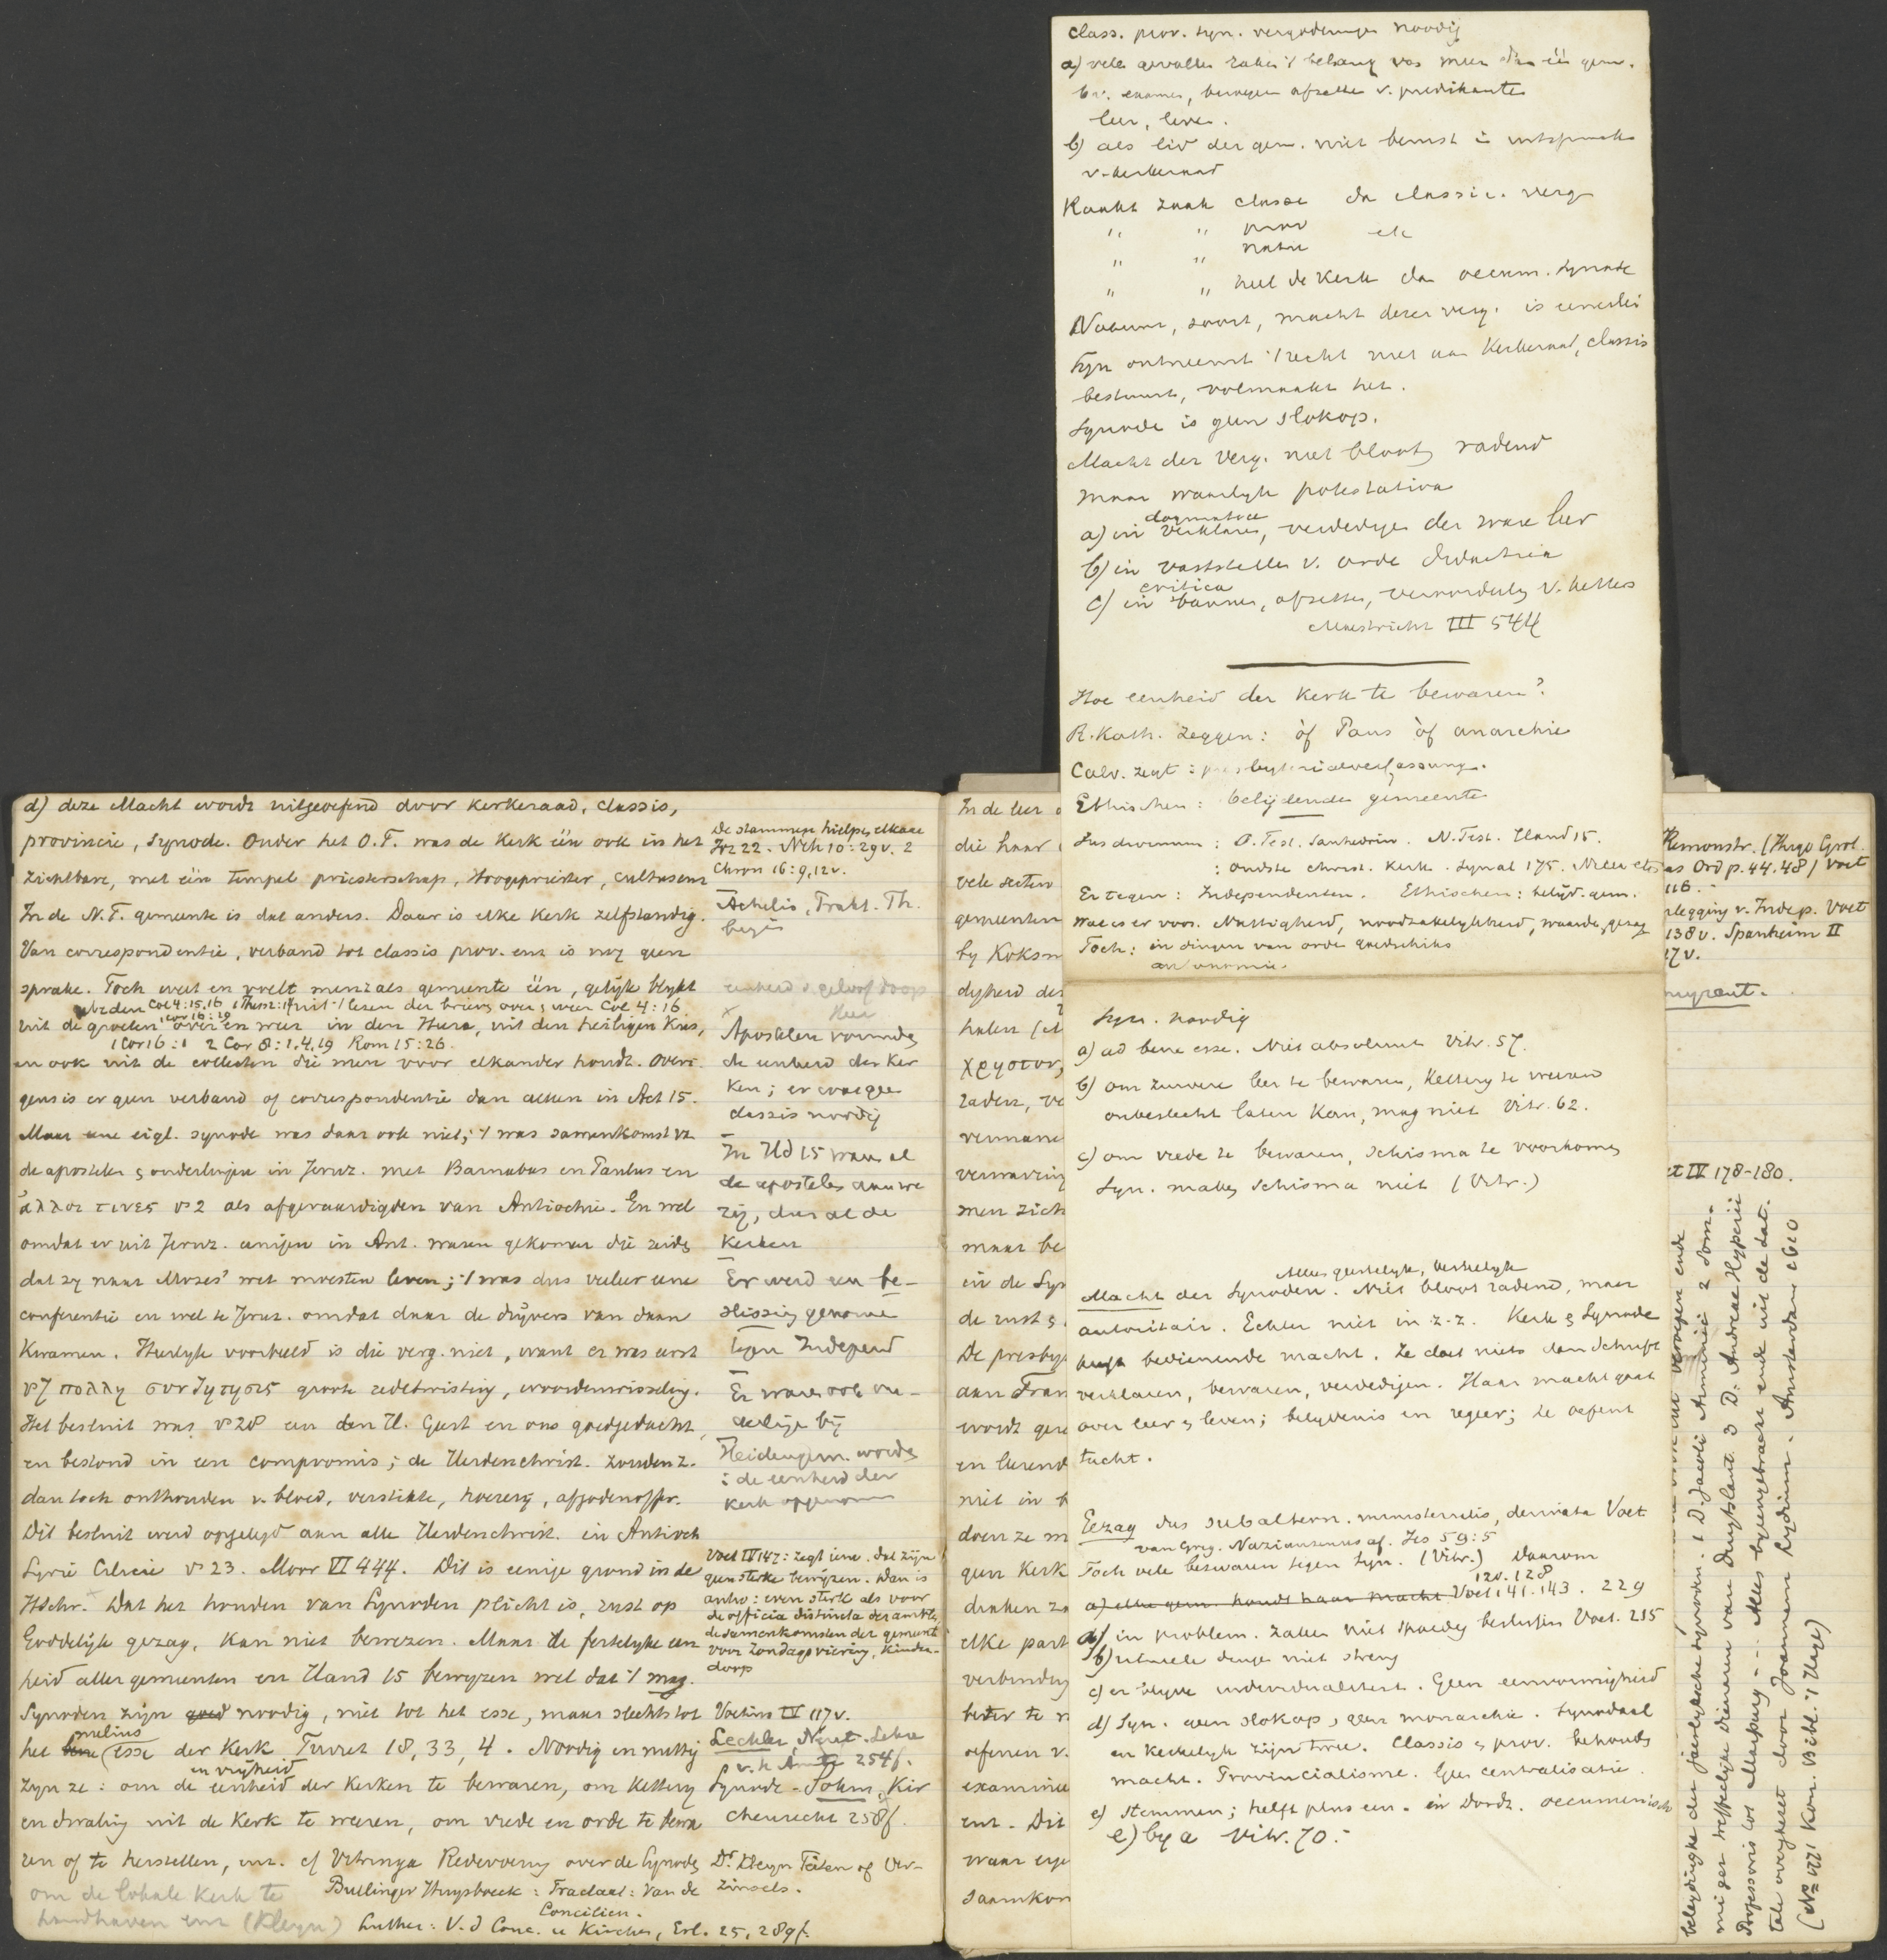 d) deze Macht wordt uitgeoefend door Kerkeraad, classis,
provincie, Synode. Onder het O.T. was de Kerk één ook in het
zichtbare, met één tempel priesterschap, Hoogepriester, cultus enz
In de N.T. gemeente is dat anders. Daar is elke Kerk zelfstandig.
Van correspondentie, verband tot classis prov. enz is nog geen
sprake. Toch weet en voelt men zich als gemeente één, gelijk blijkt
Col 4:15,16 uit 't lezen der brieven over en weer Col 4:16
uit de groeten over en weer in den Heere, uit den heiligen Kus,
1 Cor 16:1 2 Cor 8:1,4,19 Rom 15:26.
en ook uit de collecten die men voor elkander houdt. Overi-
gens is er geen verband of correspondentie dan alleen in Act 15.
Maar eene eigl. synode was daar ook niet; 't was samenkomst vd
de apostelen & ouderlingen in Jeruz. met Barnabas en Paulus en
ἄλλοι τινες v 2 als afgevaardigden van Antiochie. En wel
omdat er uit Jeruz. eenigen in Ant. waren gekomen die zeiden
dat zy naar Mozes' wet moesten leven; 't was dus veeleer eene
conferentie en wel te Jeruz. omdat daar de drijvers van daan
Kwamen. Heerlyk voorbeeld is die verg. niet, want er was eerst
v 7 πολλη συνζητησις groote redetwisting, woordenwisseling.
Het besluit was v 28 en den H. Geest en ons goedgedacht,
en bestond in een compromis; de Heidenchrist. zouden z.
dan toch onthouden v. bloed, verstikte, hoerery, afgodenoffer.
Dit besluit werd opgelegd aan alle Heidenchrist. in Antioch
Syrië Cilicië v 23. Moor VI 444. Dit is eenige grond in de
HSchr. Dat het houden van Synoden plicht is, rust op
Goddelijk gezag, kan niet bewezen. Maar de feitelyke een
heid aller gemeenten en Hand 15 bewyzen wel dat 't mag.
Synoden zijn goed noodig, niet tot het esse, maar slechts tot
melius
het bene esse der Kerk Turret 18, 33, 4. Noodig en nuttig
en vrijheid
zyn ze: om de eenheid der Kerken te bewaren, om Kettery
en dwaling uit de Kerk te weren, om vrede en orde te bewa
ren of te herstellen, enz. cf Vitringa Redevoering over de Synoden
om de lokale Kerk te
handhaven enz (Kleyn)
Bullinger Huysboeck: Tractaat: Van de
Concilien.
Luther: V. d Conc. u Kirchen, Erl. 25, 289f.
De stammen hielpen elkaar
Joz 22. Neh 10:29v. 2
Chron 16:9,12v.
Achelis, Prakt. Th.
begin
eenheid v geloof doop
Heer
Apostelen vormden
de eenheid der Ker
ken; er was geen
classis noodig
In Hd 15 waren al
de apostelen aanwe
zig, dus al de
Kerken
Er werd een be-
slissing genomen
tegen Independ
Er waren ook ou-
derlingen bij
Heidengem. worden
in de eenheid der
kerk opgenomen
Voet IV 147: zegt iem. dat zijn
geen sterke bewijzen. Dan is
antw: even sterk als voor
de officia distincta der ambten,
de samenkomsten der gemeente
voor Zondagsviering, Kinder-
doop
Voetius IV 117v.
Lechler, N. test. Lehre
v. h. Amte 254f.
Synode - Sohm, Kir
chenrecht 258f.
Dr Kleyn Feiten of Ver-
zinsels.
class. prov. syn. vergaderingen noodig
a) vele gevallen raken 't belang van meer dan één gem.
bv. examen, beroepen afzetten v. predikanten
leer, leven.
b) als lid der gem. niet berust in uitspraak
v. kerkeraad
Raakt zaak classe dan classic. verg
" " prov etc
" " natie
" " heel de Kerk dan oecum. synode
Natuur, soort, macht dezer verg. is eenerlei
Syn ontneemt 't recht niet aan Kerkeraad, classis
bestuurt, volmaakt het.
Synode is geen slokop.
Macht der Verg. niet bloot radend
maar waarlyk potestativa
dogmatice
a) in verklaren, verdedigen der ware leer
b) in vaststellen v. orde
critica
c) in bannen, afzetten, veroordeeling v. ketters
Mastricht III 544
Hoe eenheid der Kerk te bewaren?
R. Kath. zeggen: òf Paus òf anarchie
Calv. zegt: presbyterialverfassung.
Ethischen: belijdende gemeente
Jus divinum: O. Test. Sanhedrin. N. Test. Hand 15.
: oudste christ. Kerk. Synod 175. Nicea etc
Er tegen: Independenten. Ethischen: belijd. gem.
Wat is er voor. Nuttigheid, noodzakelijkheid, waarde, gezag
Toch: in dingen van orde goedschiks
autonomie.
Syn. noodig
a) ad bene esse. Niet absoluut Vitr. 57.
b) om zuivere leer te bewaren, Kettery te weren
onbeslecht laten Kan, mag niet Vitr. 62.
c) om vrede te bewaren, schisma te voorkomen
Syn. maken schisma niet (Vitr.)
Alles geestelyk, kerkelyk
Macht der Synoden. Niet bloot radend, maar
autoritair. Echter niet in z. z. Kerk & Synode
heeft bedienende macht. Ze doet niets dan Schrift
verklaren, bewaren, verdedigen. Haar macht gaat
over leer & leven; belydenis en regeer; ze oefent
tucht.
Gezag dus subaltern. ministerialis, derivata Voet
van Greg. Nazianzenus af. Jes 59:5
Toch vele bezwaren tegen Syn. (Vitr.) Daarom
120. 128
a) elke gem. houdt haar macht Voet 141. 143. 229
a) in problem. zaken niet spoedig beslissen Voet. 215
b) rituele dingen niet streng
c) er blijve individualiteit. Geen eenvormigheid
d) Syn. geen slokop, geen monarchie. Synodaal
en Kerkelyk zijn twee. Classis & prov. behouden
macht. Provincialisme. Geen centralisatie.
e) Stemmen; helft plus een. in Dordt. oecumenisch
e) by a Vitr. 70.
In de leer
die haar
vele secten
gemeenten
by Koksm
dyheid der
halen (
χριστον,
raden, ve
vermane
vermaning
men zich
maar be
in de Sys
de rust &
De presby
aan Fran
wordt gere
en leerend
niet in b
doen ze m
geen Kerk
danken za
elke part
verbinding
beter te r
oefenen v.
examine
enz. Dit
waar
saamkom
Remonstr. (Hugo Grot.
as Ord p. 44. 48) Voet
116.
rlegging v. Indep. Voet
138v. Spanheim II
17v.
et IV 178-180.
beleydinghe der jaerlycksche synoden. 1 D. Jacobi Arminii 2 Som-
miger treffelyke dienaren van Duytslant 3 D. Andreae Hyperii
Professoris tot Marpurg -- Alles byeengebracht ende uit de Lat.
tale overgheset door Joannem Lydium. Amsterdam 1610
(No 1771 Kon. Bibl. 't Hage)